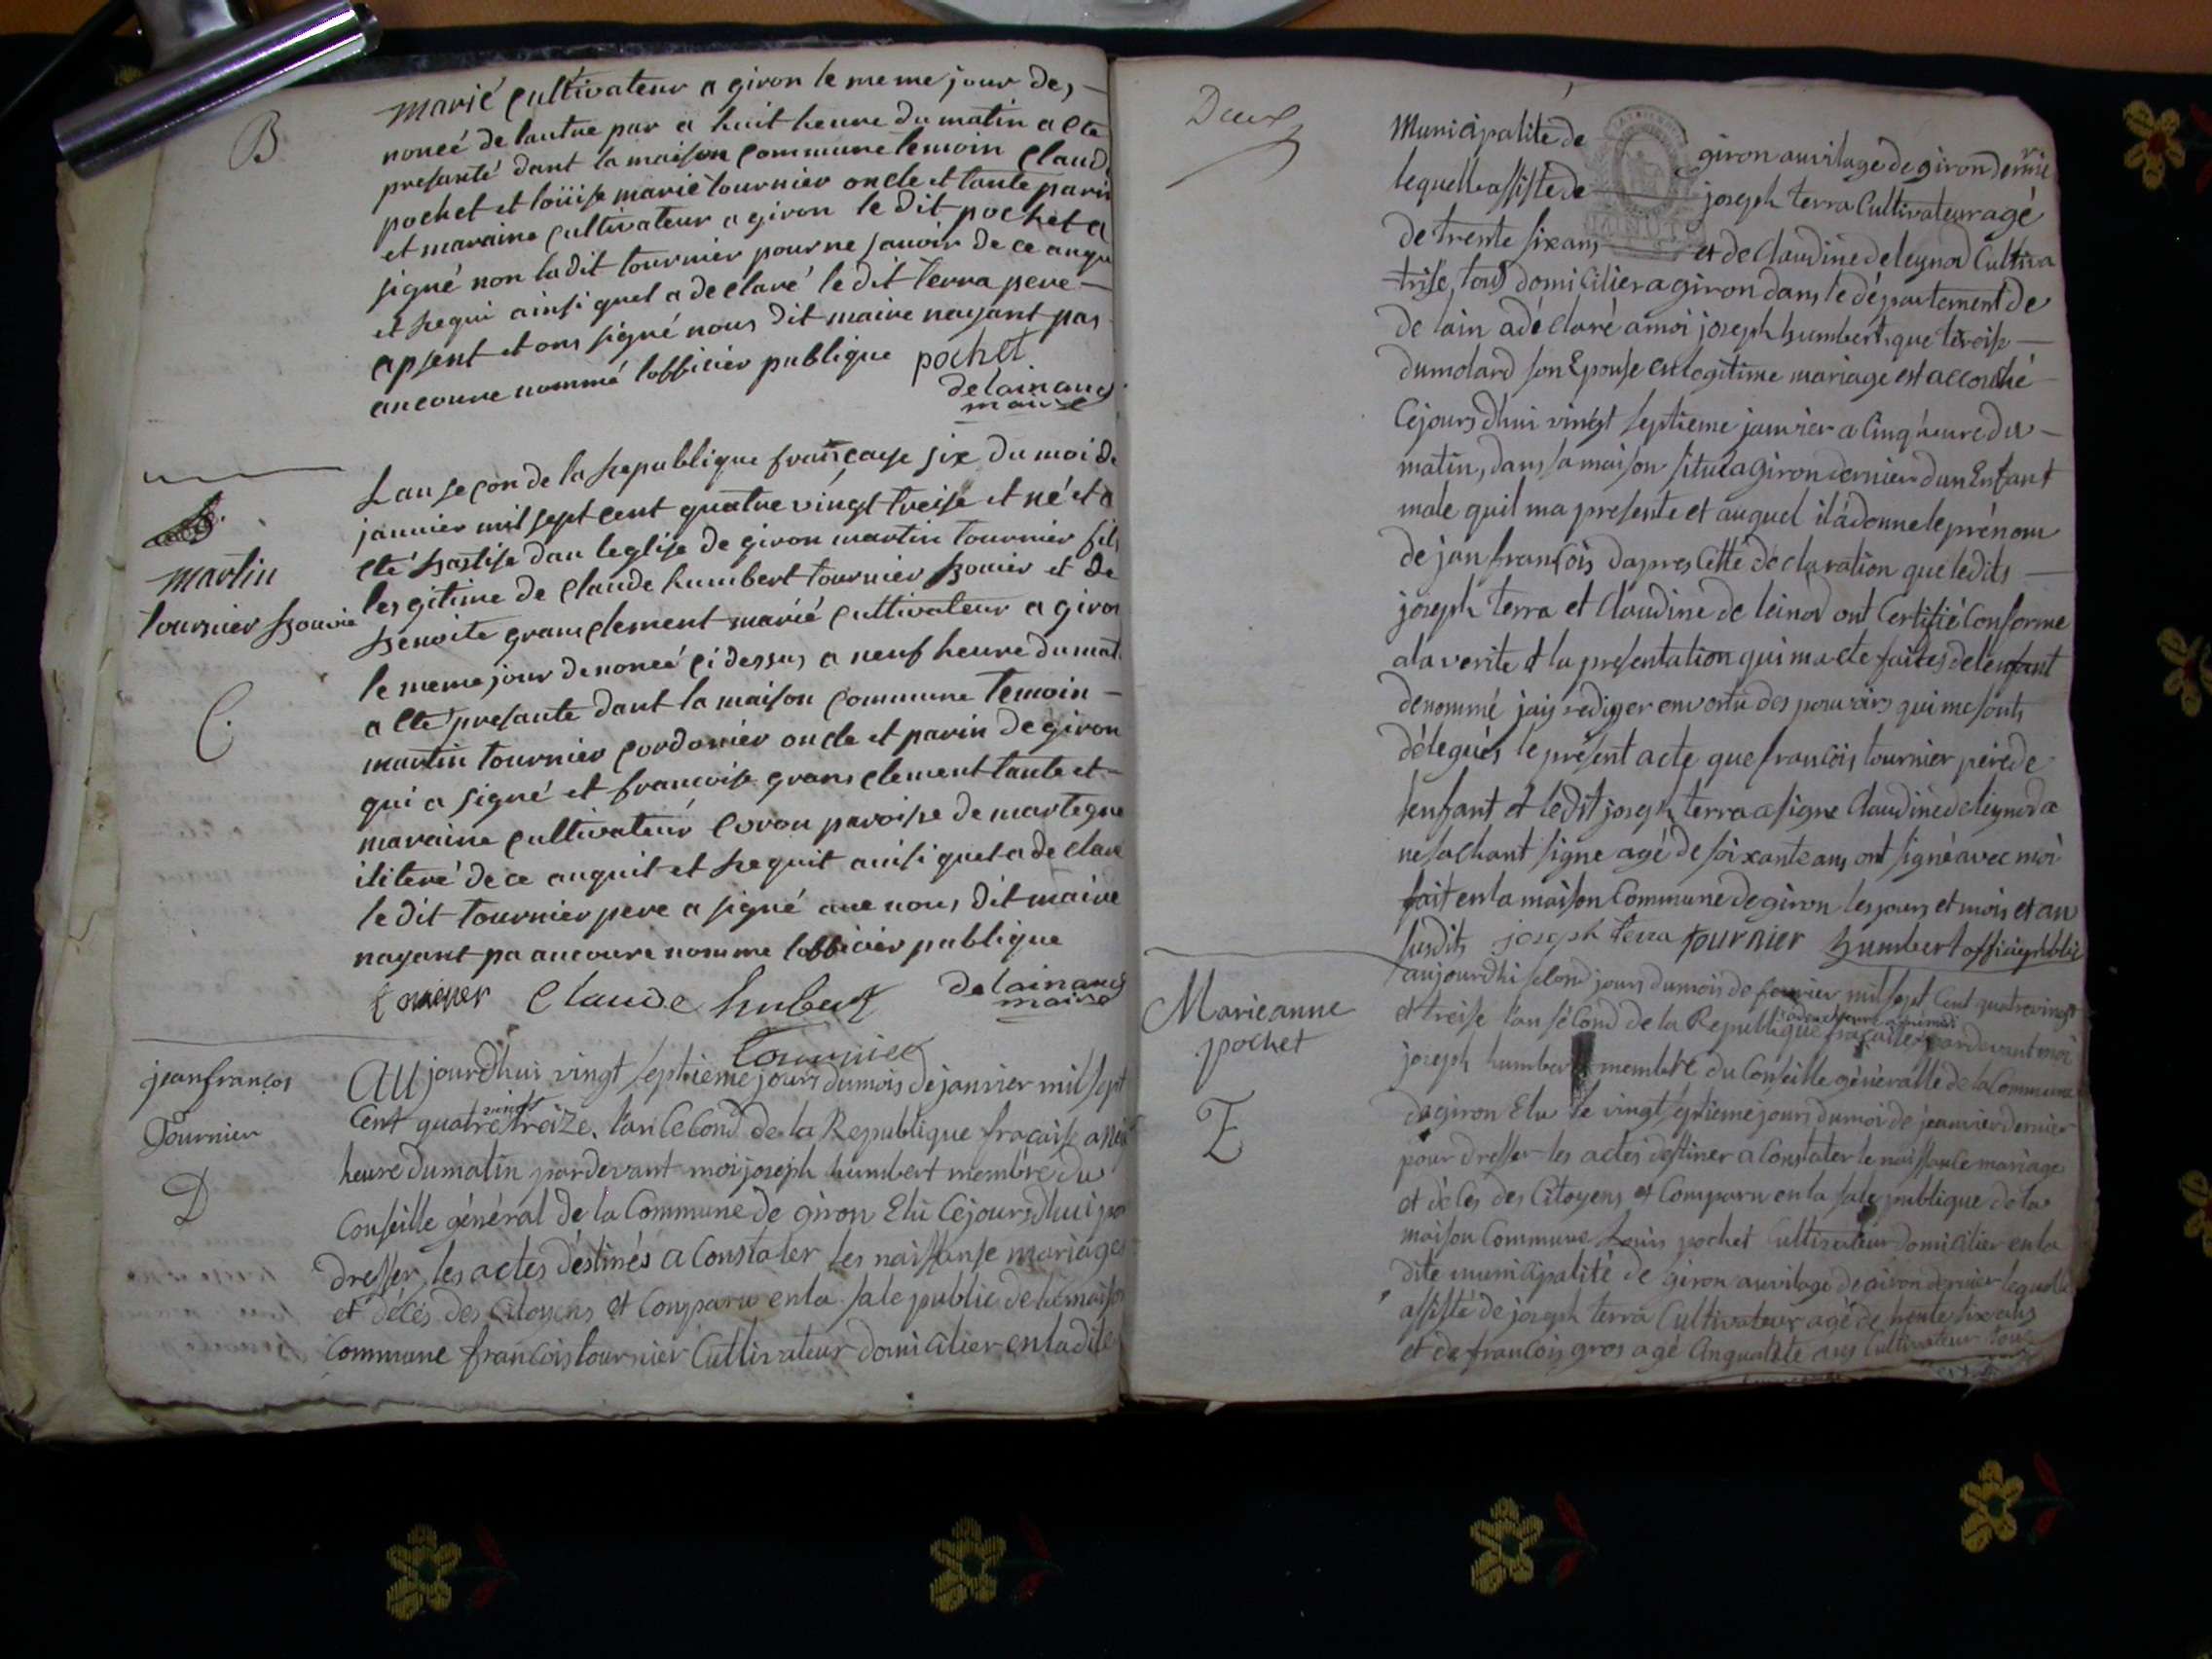 B
marié cultivateur a giron le meme jour des
noncé de lautre par a huit heure du matin a ete
presanté dant la maison commune temoin claud
pochet et loüise marie tournier oncle et tante parin
et maraine cultivateur a giron le dit pochet a
signé non ladit tournier pour ne savoir de ce anqu
et requi ainsi quel a declaré le dit terra pere
apsent et ons signé nous dit maire nayant pas
ancoure nommé lofficier publique pochet
maire
Lan segon de la republique françayse six du moi de
janvier mil sept cent quatre vingt treise et né et a
eté batise dan leglise de giron martin tournier fils
legitime de claude humbert tournier bouvié et de
benoite granclement marié cultivateur a giron
le meme jour denoncé ci dessus a neuf heure du mat
a ete presante dant la maison commune temoin
martin tournier cordonier oncle et parin de giron
qui a signé et francoise gransclement tante et
maraine cultivateur paroisse de martegne
iliteré de ce anquit et requit ainsi quel a de clare
le dit tournier pere a signé ave nous dit maire
nayant pa ancoure nomme lofficier publique
maire
claude hubert
tournier
martin
tournier bouvié
C.
jean françois
Tournier
D
Aujourdhui vingt septieme jours du mois de janvier mil sept
Cent quatre vingt treize, l'an second de la Republique fraçaise a neuf
heure du matin pardevant moi joseph humbert membre du
Conseille général de la Commune de giron Elu Cejourdhui pour
dresser les actes déstinés a Constater les naissanse mariages
et décés des Citoyens et Comparu en la sale public de la maison
Commune francois tournier Cultivateur domicilier en la dite
Deux
Municipalité de giron au vilage de giron dernié
lequell assisté de joseph terra Cultivateur agé
de trente six ans et de Claudine deleynod Cultiva
trise, tous domicilier a giron dans le département de
de lain a déclaré a moi joseph humbert que
dumolard son Epouse en legitime mariage est accouché
Cejourdhui vingt septieme janvier a Cinq heure du
matin, dans sa maison situé a giron dernier dun Enfant
male quil ma presente et auquel il a donne le prénom
de jan françois dapres Cette declaration que ledits
joseph terra et Claudine de leinod ont Certifié Conforme
a la verite et la presentation qui ma ete faites de lenfant
denommé jais rediger en vertu des pouvoirs qui me sonts
délegués le présent acte que francois tournier pére de
lenfant et ledit joseph terra a signe Claudine de leynod a
ne sachant signe agé de soixante ans ont signé avec moi
fait en la maison Commune de giron les jours et mois et an
susdits joseph terra tournier humbert officié publi
Marieanne
pochet
E
aujourdhi selond jours du mois de fevrier mil sept Cent quatrevingt
et treise l'an sécond de la Republique fraçaise pardevant moi
joseph humbert membre du Conseille généralle de la Commune
de giron Elu le vingt septieme jours du moi de jeanvier dernier
pour dresser les actes destiner a Constater le naissance mariage
et décés des Citoyens et Comparu en la sale publique de la
maison Commune Louis pochet Cultivateur domicilier en la
dite municipalité de giron au vilage de giron dernier lequelle
assisté de joseph terra Cultivateur agé de trente six ans
et de francois gros agé Cinquante ans Cultivateur tous